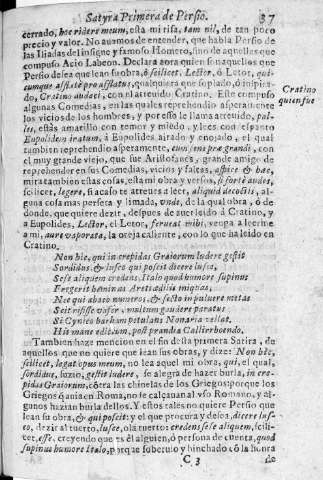 Satyra Primera de Persio. 37
cerrado, hoc ridere meum, esta mi risa, tam nil, de tan poco
precio y valor. No auemos de entender, que habla Persio de
las Iliadas del insigne y famoso Homero, sino de aquellas que
compuso Acio Labeon. Declara aora quien son aquellos que
Persio desea que lean su obra, ò scilicet, Lector, ò Letor, qui-
cumque afflate pro afflatus, qualquiera que soplado, ò inspira-
do, Cratino audaci, con el atreuido Cratino. Este compuso
algunas Comedias, en las quales reprehendio asperamente
los vicios de los hombres, y por esso le llama atreuido, pal-
les, estàs amarillo con temor y miedo, y lees con espanto
Eupolidem iratum, à Eupolides airado y enojado, el qual
tambien reprehendio asperamente, cum seni præ grandi, con
el muy grande viejo, que fue Aristofanes, grande amigo de
reprehender en sus Comedias, vicios y faltas, aspice & hæc,
mira tambien estas cosas, esta mi obra y versos, si fortè audes,
scilicet, legere, si acaso te atreues a leer, aliquid decoctis, al-
guna cosa mas perfeta y limada, vnde, de la qual obra, ò de
donde, que quiere dezir, despues de auer leido à Cratino, y
a Eupolides, Lector, el Letor, ferueat mihi, venga a leerme
a mi, aure vaporata, la oreja caliente, con lo que ha leido en
Cratino.
Cratino
quien fue
Non hic, qui in crepidas Graiorum ludere gestit
Sordidus, & lusco qui poscit dicere lusce,
Sese aliquem credens, Italo quod honore supinus
Fregerit heminas Areti ædilis iniquas,
Nec qui abaco numeros, & secto in puluere metas
Scit risisse vafer, multum gaudere paratus
Si Cynico barbam petulans Nonaria vellat,
His mane edictum, post prandia Callirrhoen do.
Tambien haze mencion en el fin desta primera Satira, de
aquellos que no quiere que lean sus obras, y dize: Non hic,
scilicet, legat opus meum, no lea aquel mi obra, qui, el qual,
sordidus, suzio, gestit ludere, se alegra de hazer burla, in cre-
pidas Graiorum, cõtra las chinelas de los Griegos: porque los
Griegos q̃ uiuiã en Roma, no se calçauan al vso Romano, y al-
gunos hazian burla dellos. Y estos tales no quiere Persio que
lean su obra, & qui poscit: y el que procura y desea, dicere lus-
co, dezir al tuerto, lusce, ola tuerto: credens sese aliquem, scili-
cet, esse, creyendo que es el alguien, ò persona de cuenta, quod
supinus honore Italo, porque soberuio y hinchado cõ la honra
C 3 de